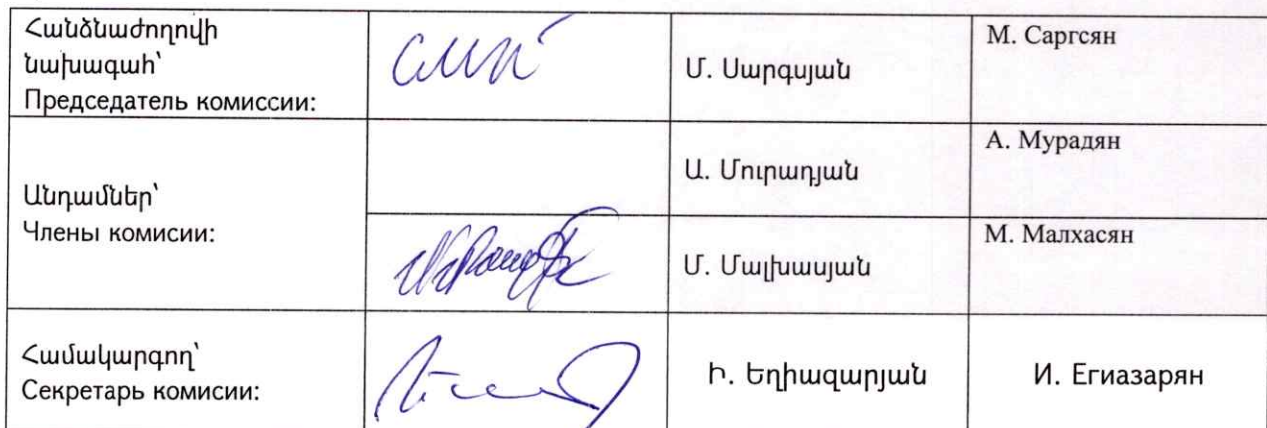 Հանձնաժողովի
նախագահ՝
Председатель комиссии:
Մ. Սարգսյան
М. Саргсян
Անդամներ՝
Члены комисии:
Ա. Մուրադյան
А. Мурадян
Մ. Մալխասյան
М. Малхасян
Համակարգող՝
Секретарь комисии:
Ի. Եղիազարյան
И. Егиазарян